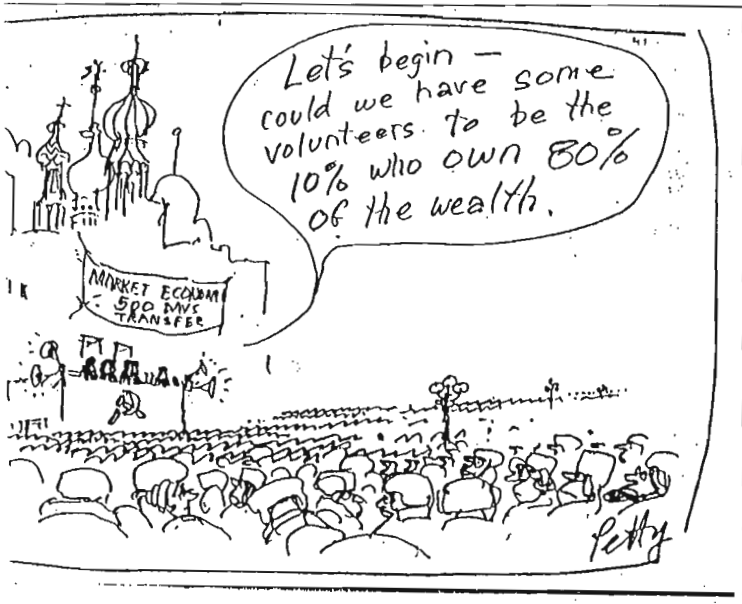 Let's begin —
could we have some
volunteers to be the
10% who own 80%
of the wealth.
MARKET ECONOM
500 DAYS
TRANSFER
Petty